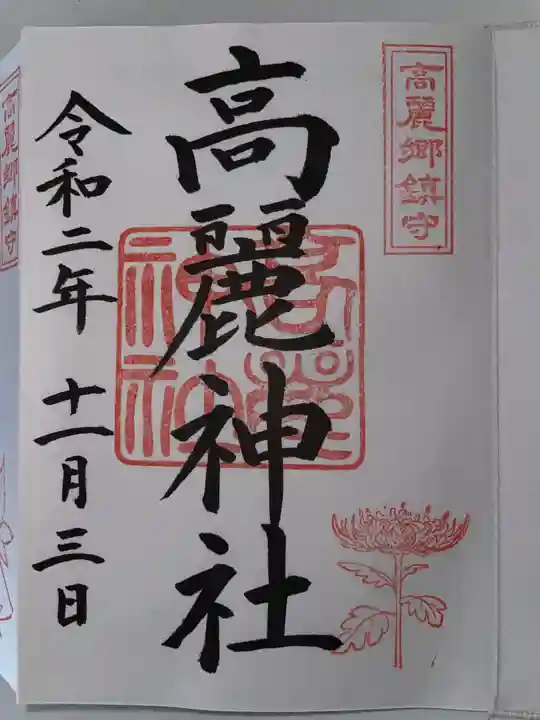 高麗郷鎮守
高麗神社
令和二年 十一月三日
高麗郷鎮守